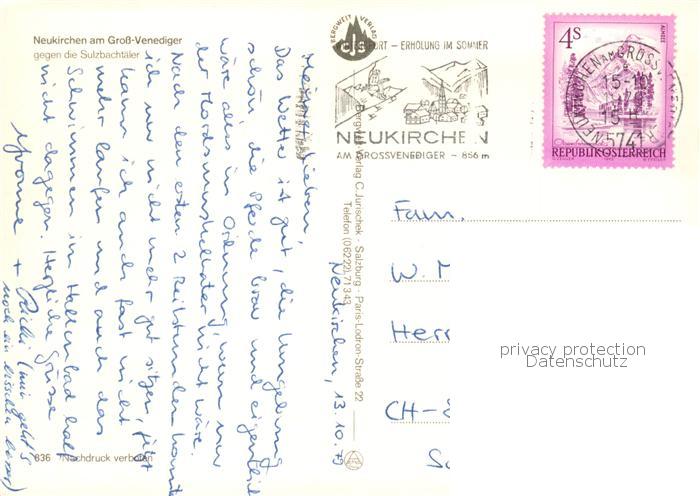 Neukirchen am Groß-Venediger
gegen die Sulzbachtäler
BERGWELT VERLAG
cjs
ERHOLUNG IM SOMMER
NEUKIRCHEN
AM GROSSVENEDIGER – 856 m
4S
ALMSEE
REPUBLIK ÖSTERREICH
5741
Neukirchen, 13.10.79
Meine Lieben,
Das Wetter ist gut, die Umgebung
schön, die Pferde brav und eigentlich
wäre alles in Ordnung, wenn nur
der Mordsmuskelkater nicht wäre.
Nach den ersten 2 Reitstunden konnte
ich nur nicht mehr gut sitzen, jetzt
kann ich auch fast nicht
mehr laufen und auch das
Schwimmen im Hallenbad half
nicht dagegen. Herzliche Grüsse
Yvonne + (mir geht's
noch ein bisschen besser)
Bergwelt Verlag C. Jurischek · Salzburg · Paris-Lodron-Straße 22
Telefon (06222) 71343
636 Nachdruck verboten
Fam.
W. M
Herr
CH-
privacy protection
Datenschutz